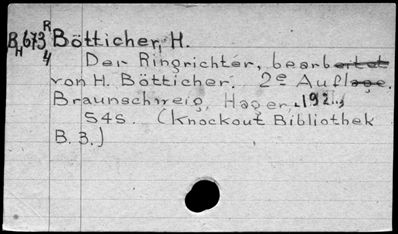 R
B 673 Bötticher, H.
H 4 Der Ringrichter, bearbeitet
von H. Bötticher. 2e Auflage.
Braunschweig, Hager, 192..,
54s. (Knockout Bibliothek
B. 3.)